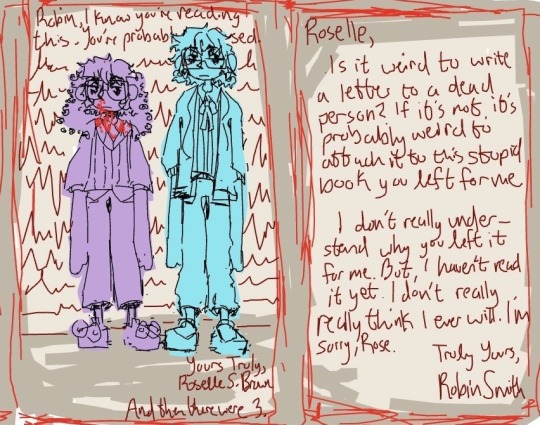 Robin, I know you're reading
this. You're probab sed
Yours Truly,
Roselle S. Brown
And then there were 3.
Roselle,
Is it weird to write
a letter to a dead
person? If it's not, it's
probably weird to
attach it to this stupid
book you left for me
I don't really under-
stand why you left it
for me. But, I haven't read
it yet. I don't really,
really think I ever will. I'm
sorry, Rose.
Truly Yours,
Robin Smith